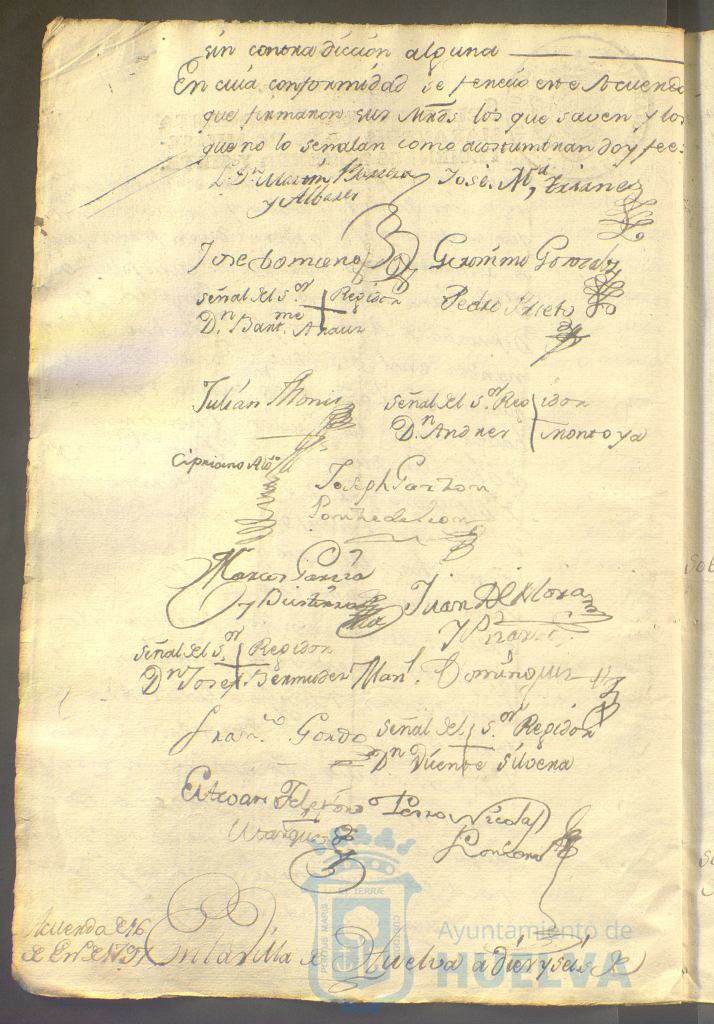 sin contradiccion alguna
En cuia conformidad se feneció este Acuerdo
que firmaron sus Mrds los que saven y los
que no lo señalan como acostumbran doy fee
L. Dn Martin Barrera
y Albarer
José Ma,
Jose Romero
Geronimo Gonzalez
Señal del S.or Regidor
Dn Bart.me Arauz
Pedro Prieto
Julián
Señal del S.or Regidor
Dn Andres Montoya
Cipriano
Joseph Garzon
Ponzedeleon
Marcos Garcia
y
Juan de Mora
y
Señal del S.or Regidor
Dn Josef Bermudez
Manl. Dominguez
Fran.co Gordo
Señal del S.or Regidor
Dn Vicente Silvera
Estevan
Marquez
Pedro Nicolas
Acuerdo de 16
de En.o de
En la villa de Huelva a diez y seis de
ET TERRÆ
PORTUS MARIS
CUSTODIA
Ayuntamiento de
HUELVA